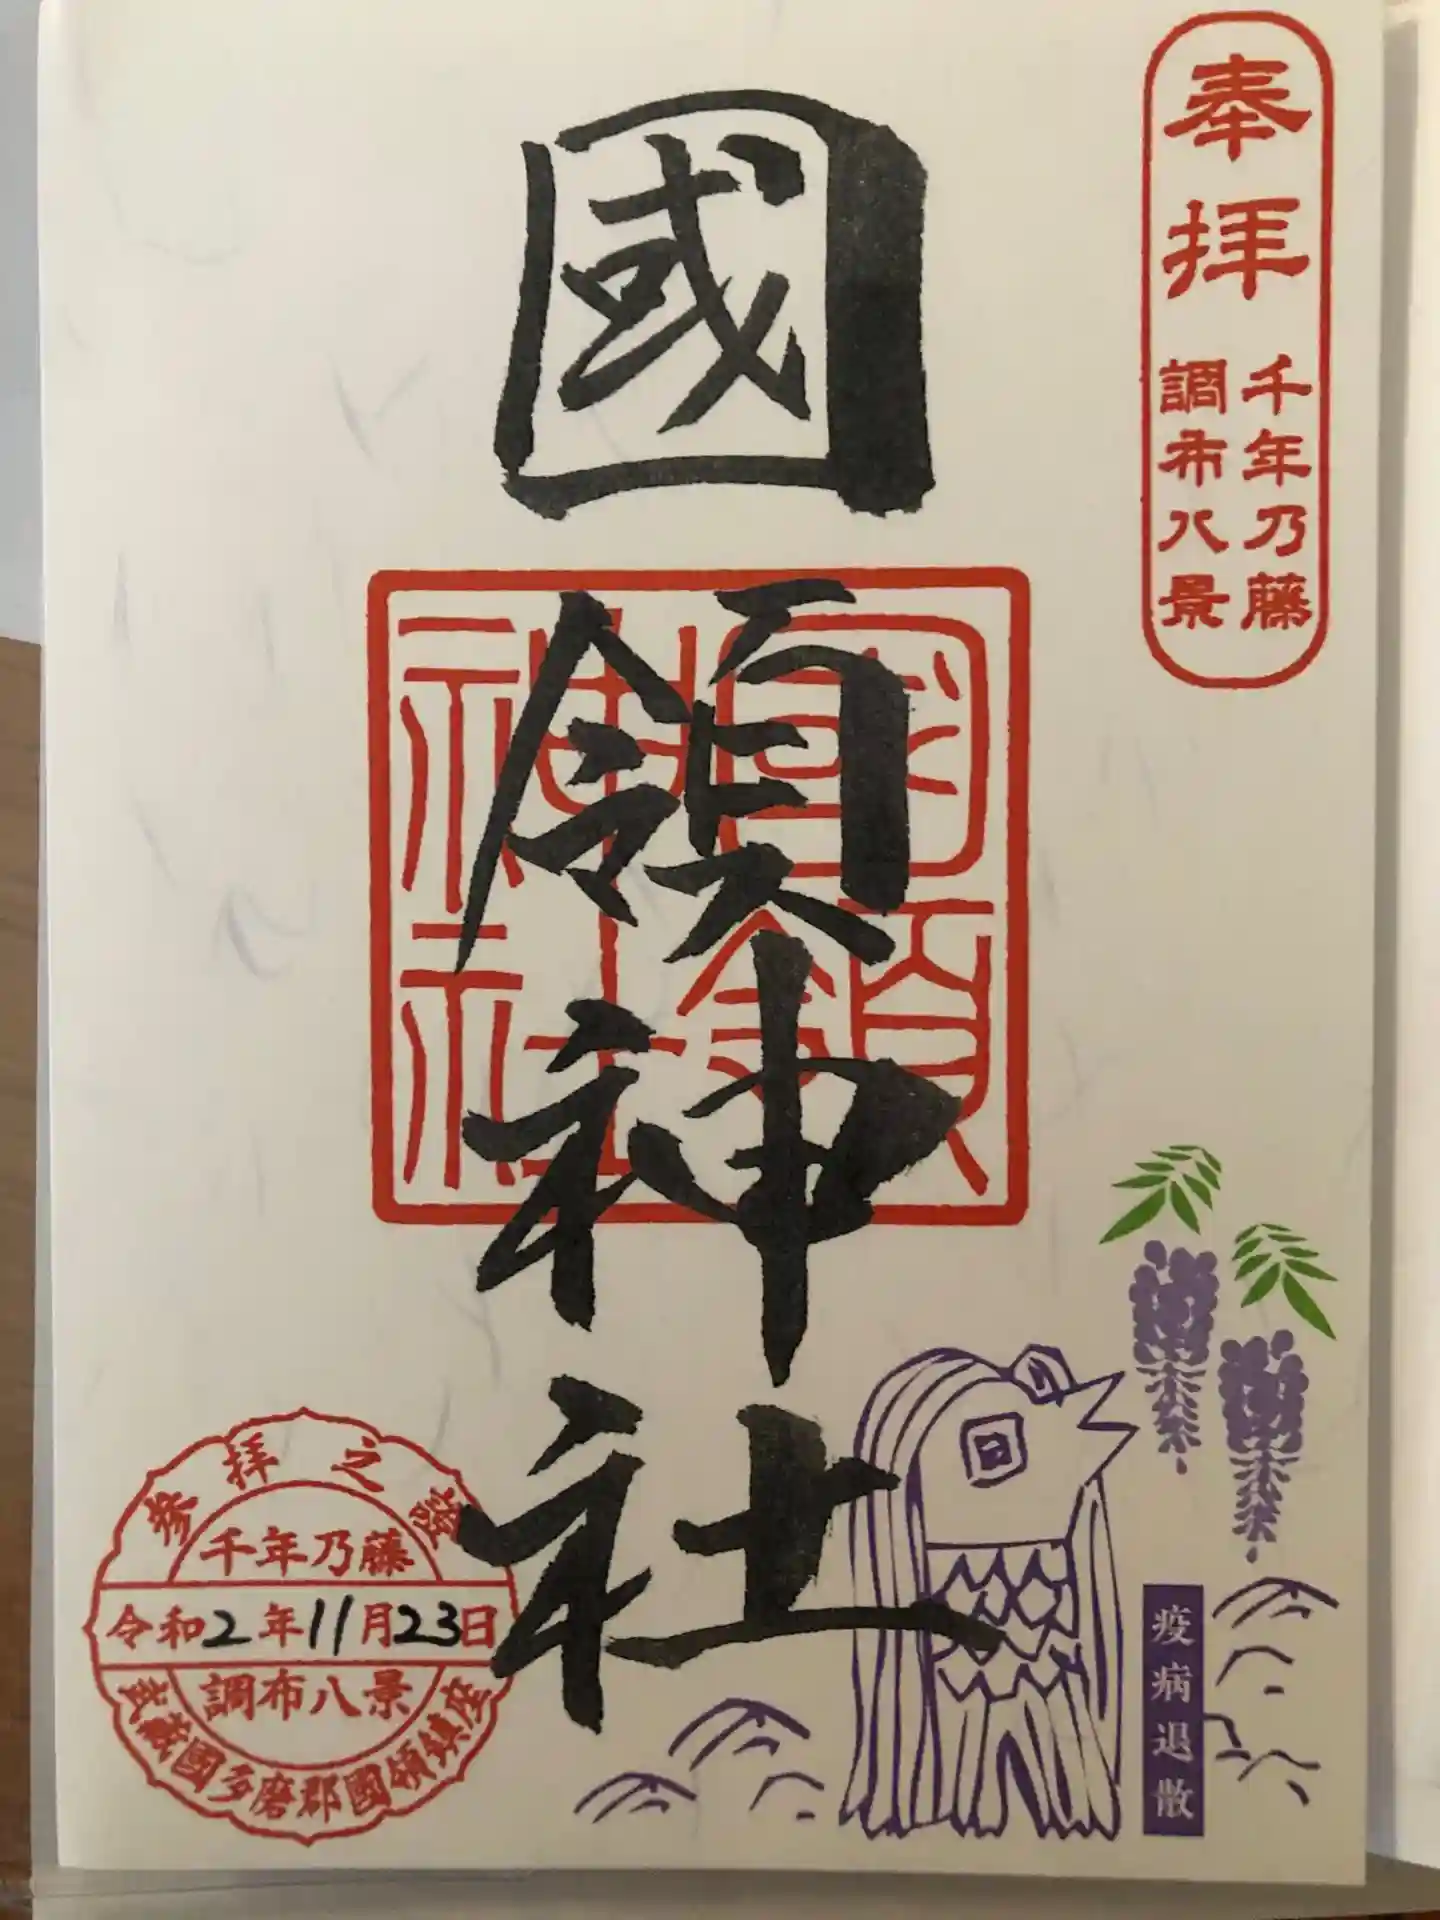 奉拝
千年乃藤
調布八景
國領神社
國領神社
参拝之證
千年乃藤
令和2年11月23日
調布八景
武蔵國多磨郡國領鎮座
疫病退散